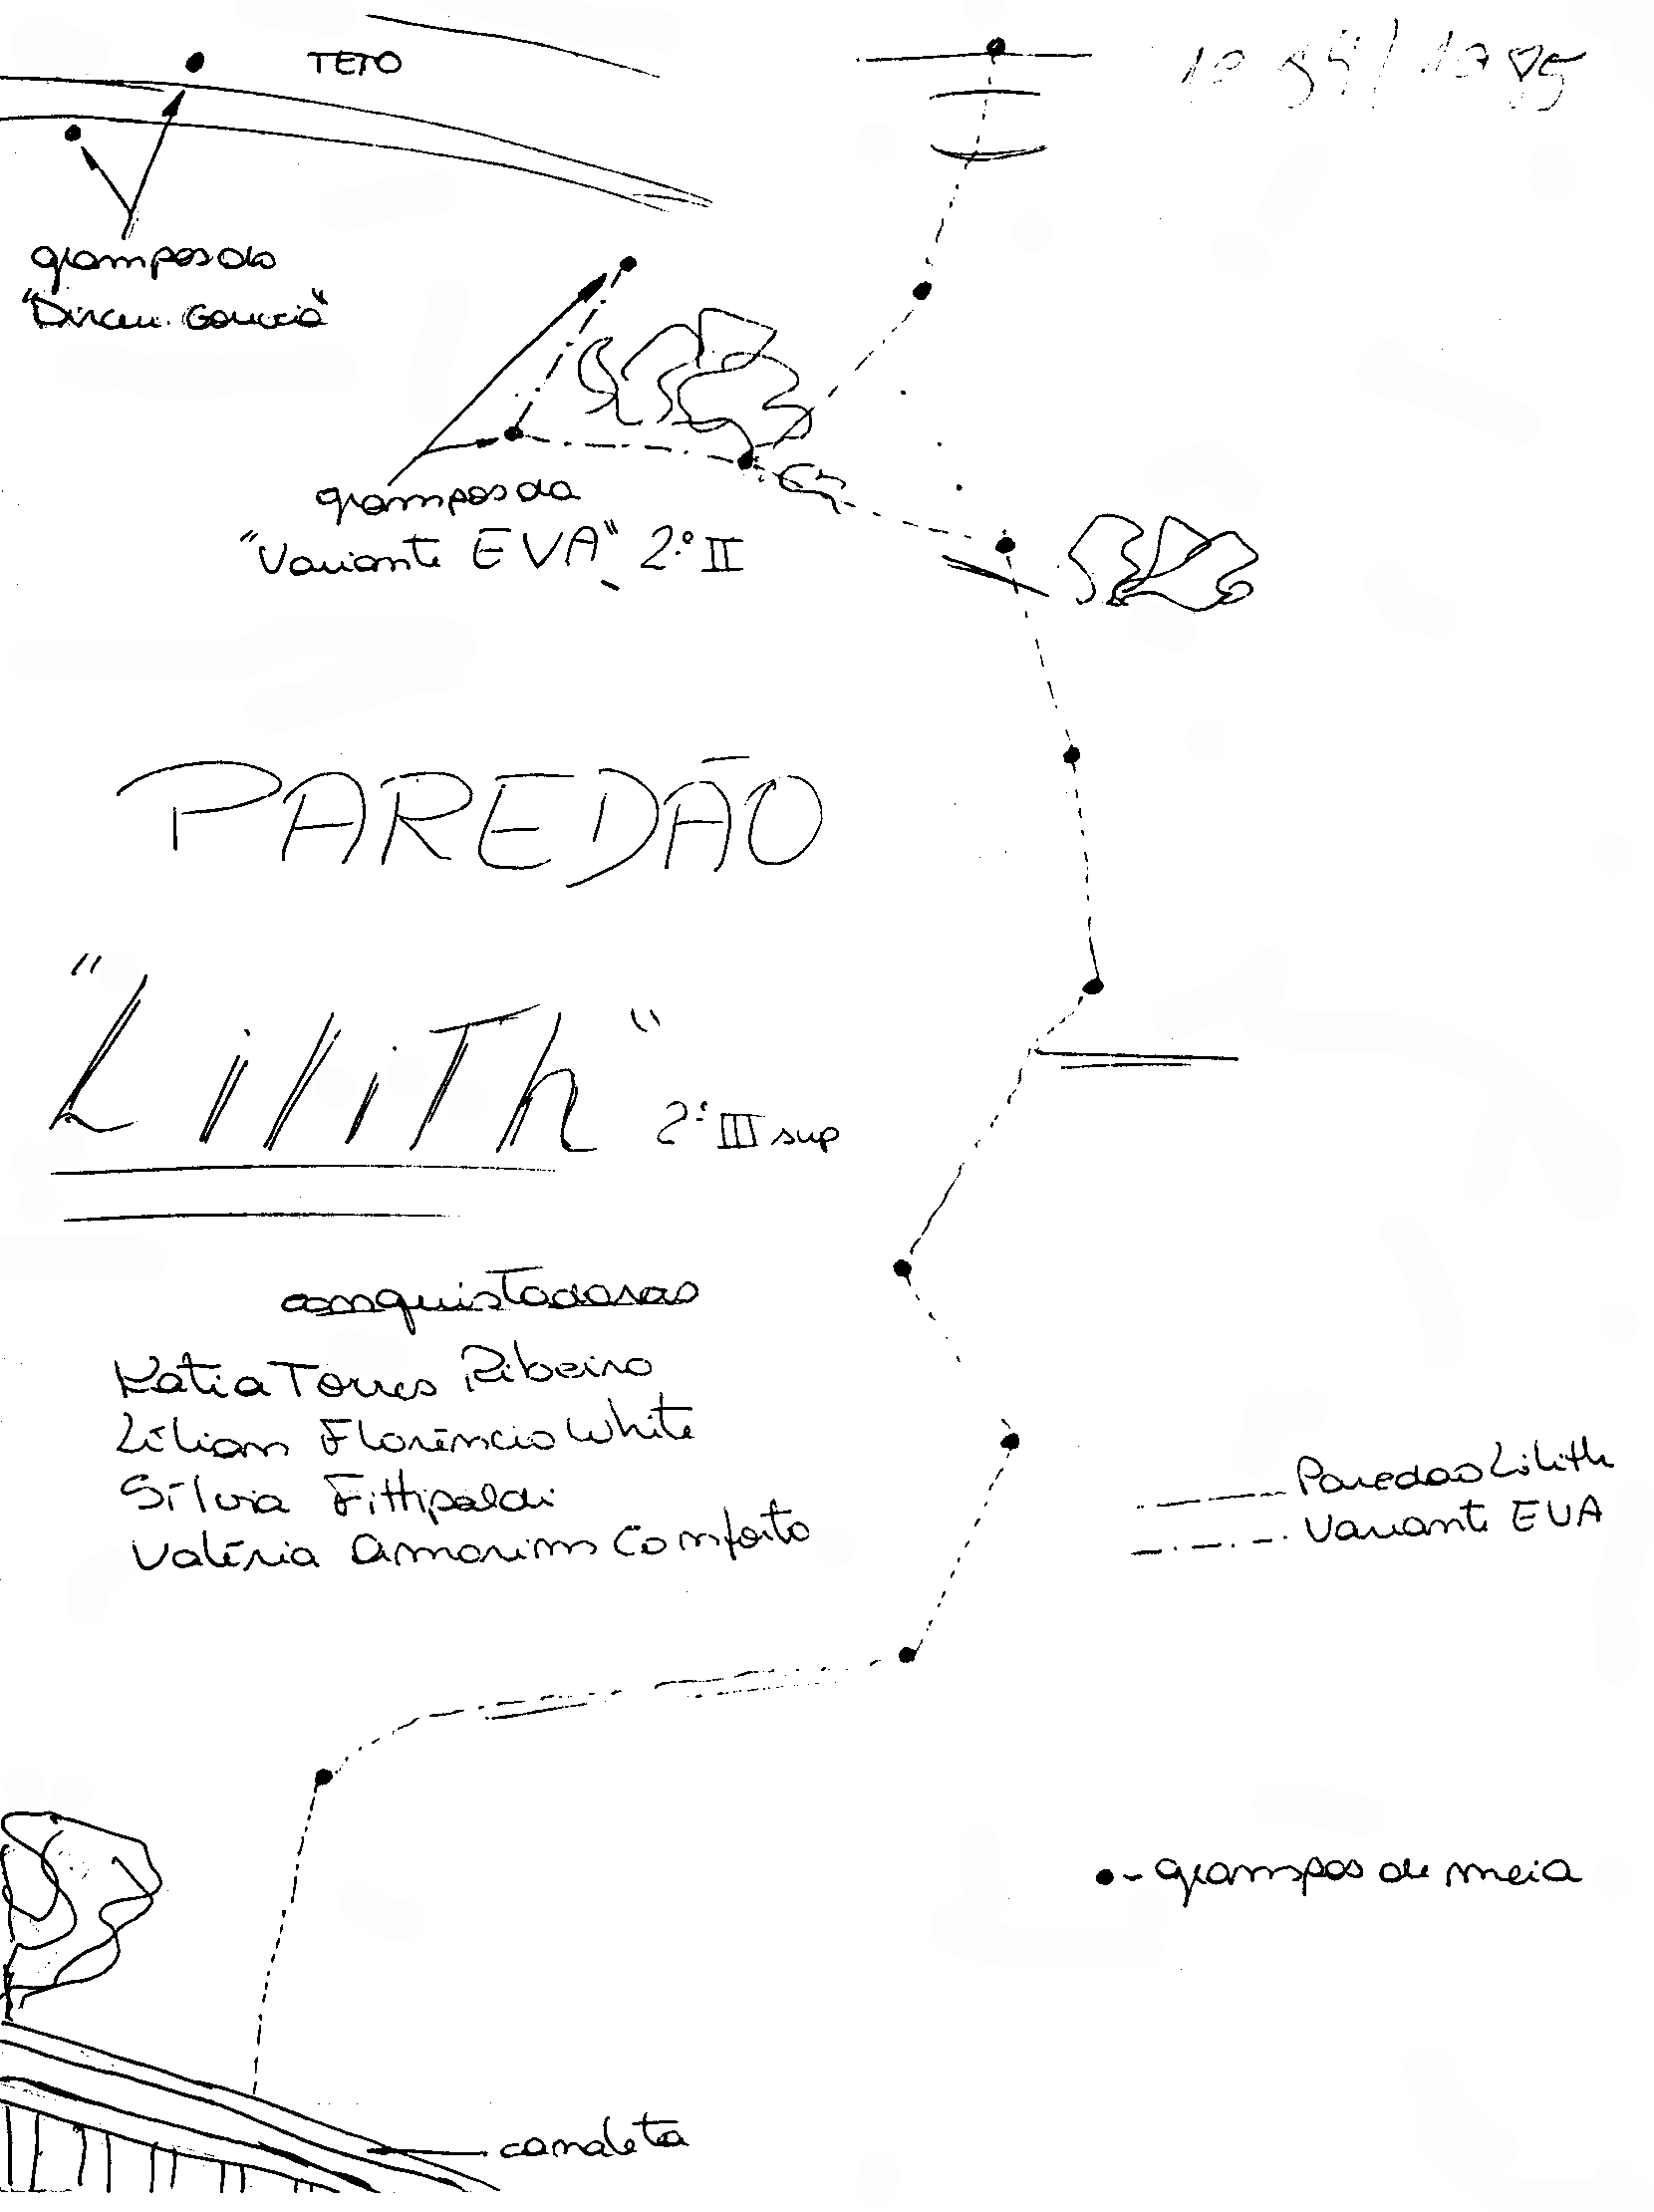 TETO
grampos do
"Dirceu Gouveia"
grampos da
"Variante EVA" 2º II
PAREDÃO
"LiliTh" 2º III sup
conquistadoras
Katia Torres Ribeiro
Lílian Florêncio White
Sílvia Fittipaldi
Valéria Amorim Conforto
Paredão Lilith
Variante EVA
- grampos de meia
canaleta